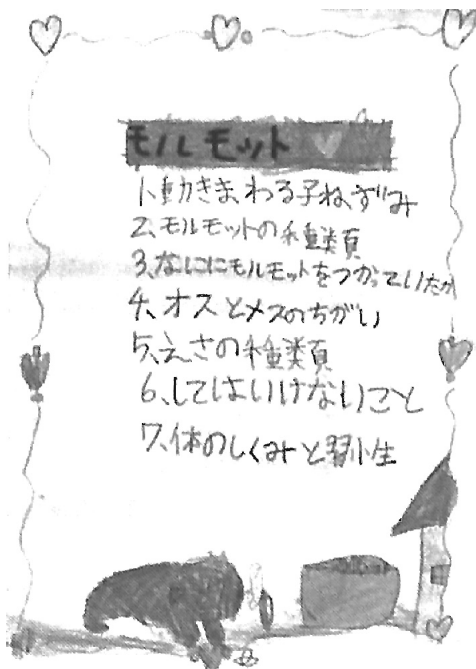 モルモット
1、動きまわる子ねずみ
2、モルモットの種類
3、なににモルモットをつかっていたか
4、オスとメスのちがい
5、えさの種類
6、してはいけないこと
7、体のしくみと習性